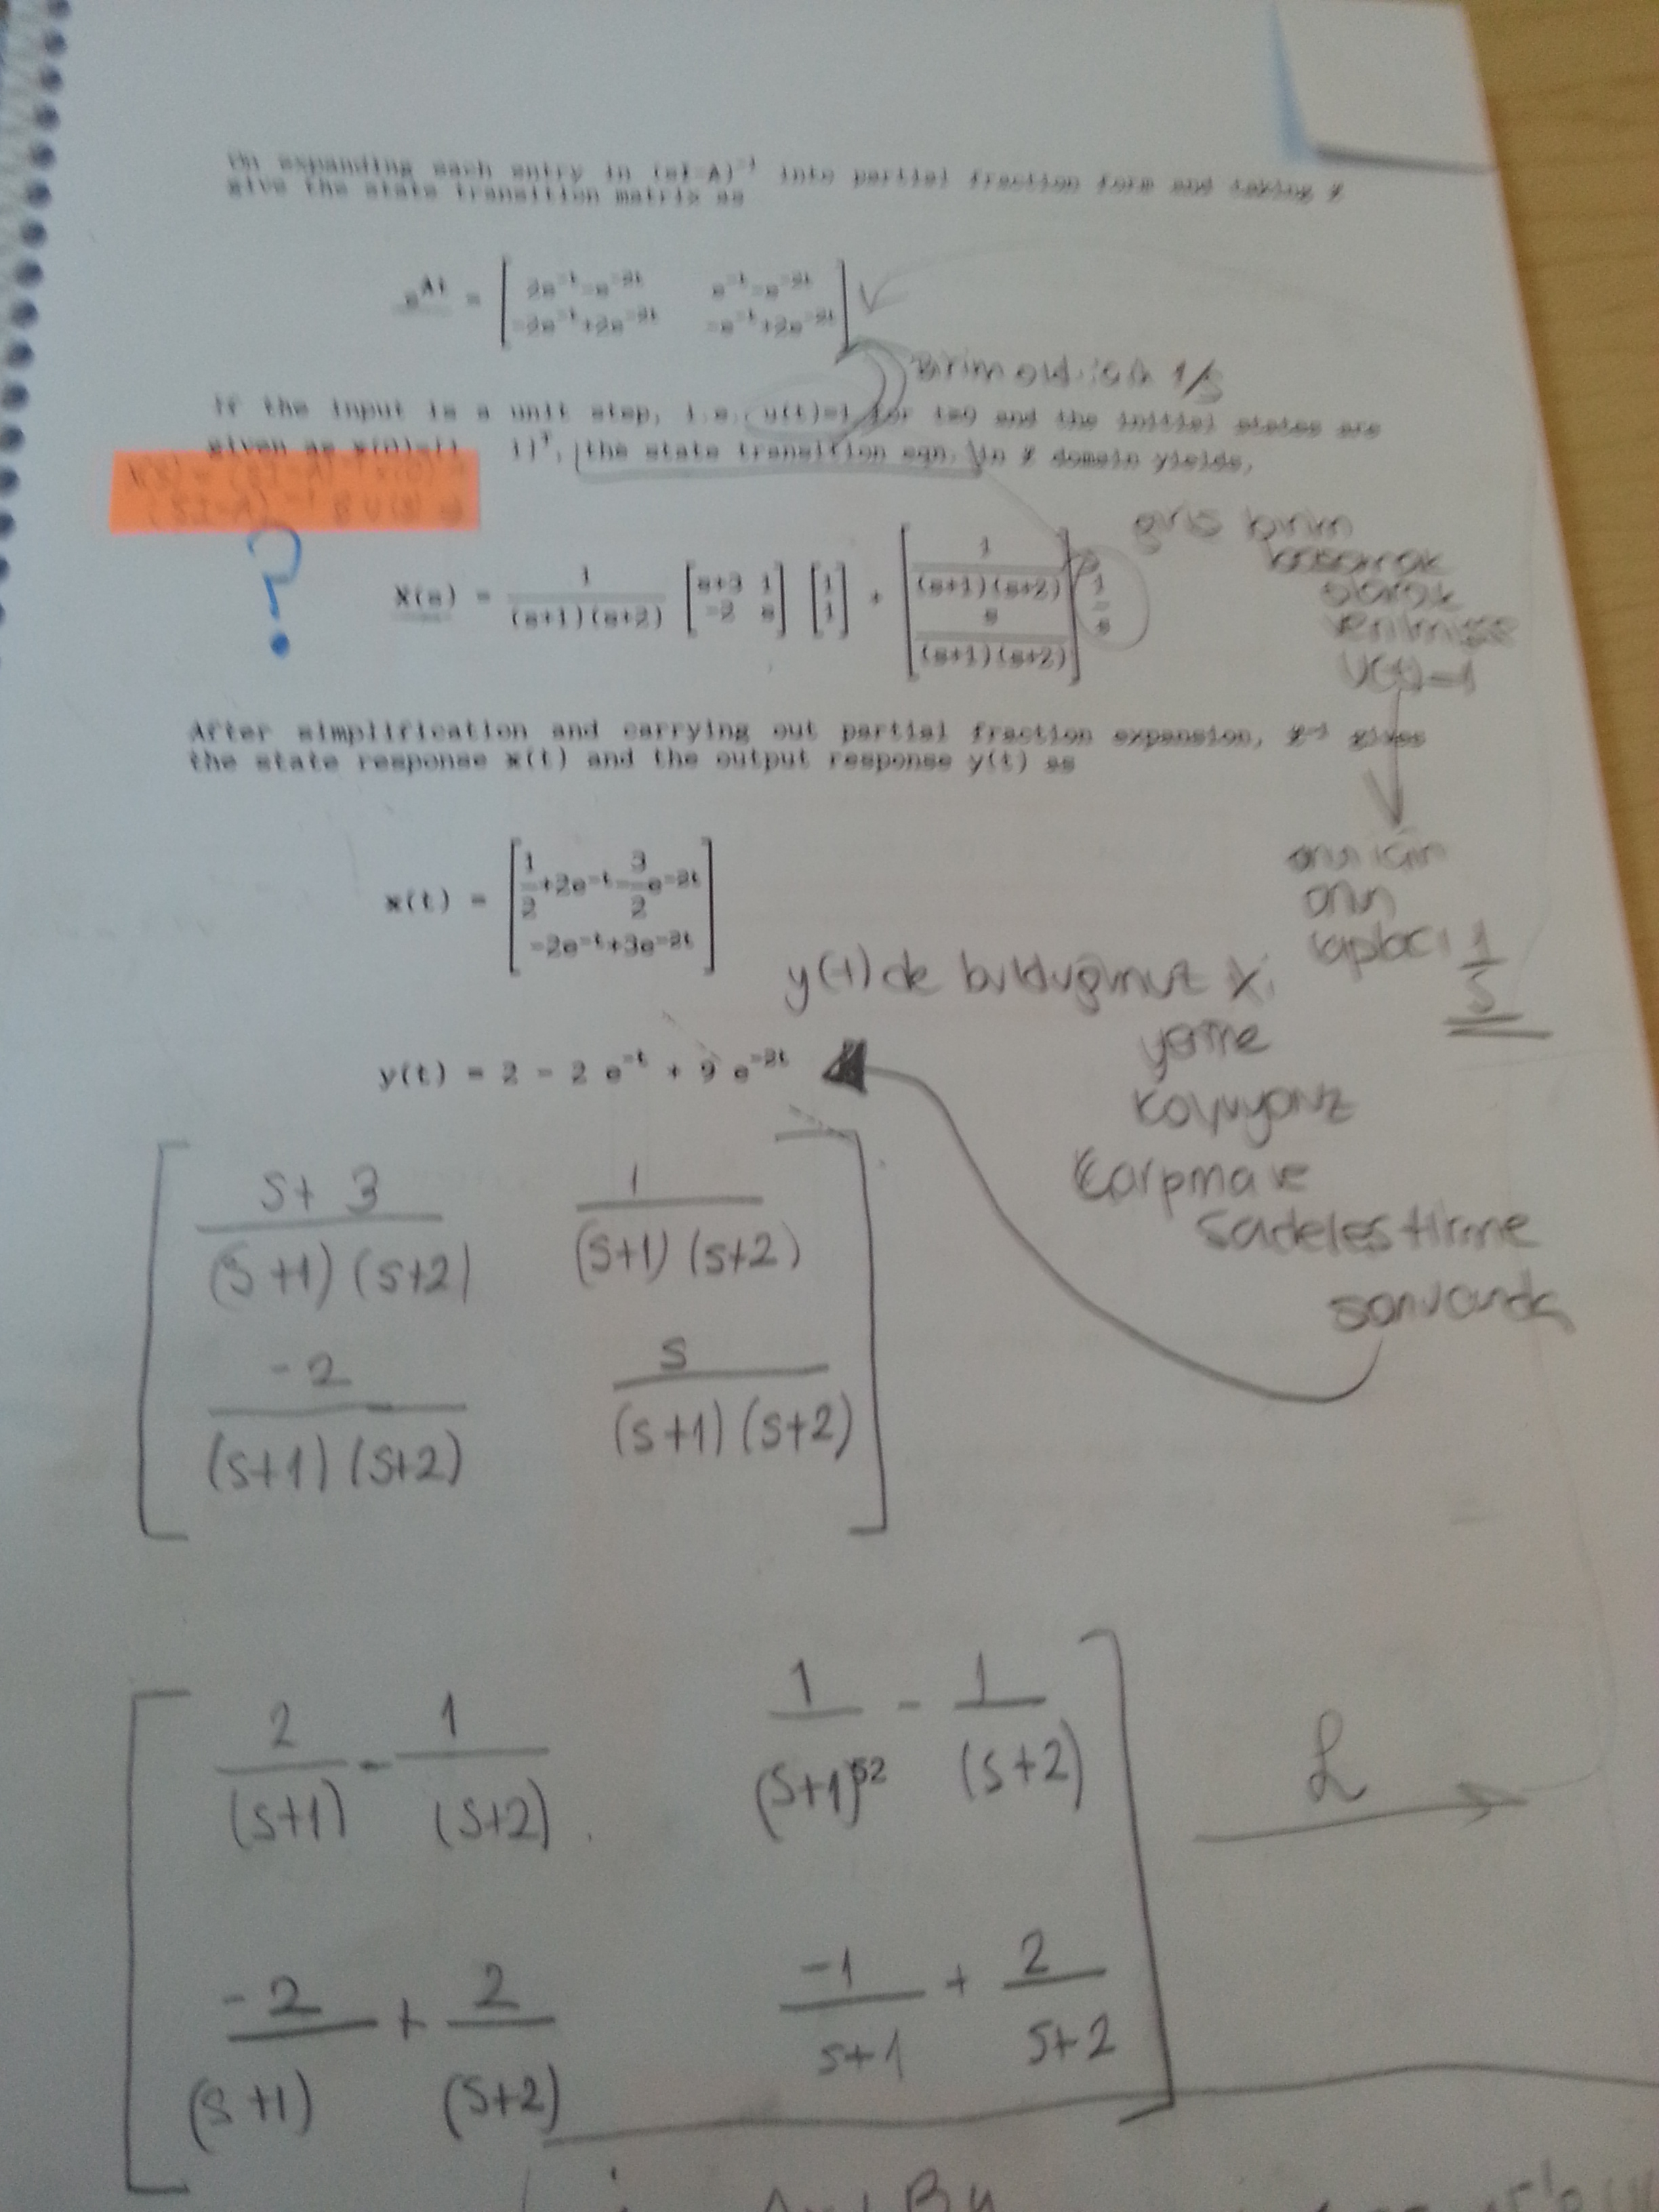 On expanding each entry in (sI-A)⁻¹ into partial fraction form and taking ℒ
give the state transition matrix as
e^{At} = [ 2e^{-t}-e^{-2t}   e^{-t}-e^{-2t} ]
[ -2e^{-t}+2e^{-2t}   -e^{-t}+2e^{-2t} ]
Birim old. için 1/s
If the input is a unit step, i.e. u(t)=1 for t≥0 and the initial states are
given as x(0)=[1 1]ᵀ, the state transition eqn. in ℒ domain yields,
X(s) = (sI-A)⁻¹ x(0) +
(sI-A)⁻¹ B U(s)
?
X(s) = 1/((s+1)(s+2)) [ s+3 1 ; -2 s ] [ 1 ; 1 ] + [ 1/((s+1)(s+2)) ; s/((s+1)(s+2)) ] 1/s
giriş birim
basamak
olarak
verilmişse
U(t)=1
onun için
onun
laplacı 1/s
After simplification and carrying out partial fraction expansion, ℒ⁻¹ gives
the state response x(t) and the output response y(t) as
x(t) = [ 1/2+2e^{-t}-3/2e^{-2t} ]
[ -2e^{-t}+3e^{-2t} ]
y(t) de bulduğumuz x i
yerine
koyuyoruz
Çarpma ve
sadeleştirme
sonucunda
y(t) = 2 - 2 e^{-t} + 9 e^{-2t}
[ s+3/((s+1)(s+2))   1/((s+1)(s+2)) ]
[ -2/((s+1)(s+2))   s/((s+1)(s+2)) ]
[ 2/(s+1) - 1/(s+2)   1/(s+1) - 1/(s+2) ]
ℒ
[ -2/(s+1) + 2/(s+2)   -1/s+1 + 2/s+2 ]